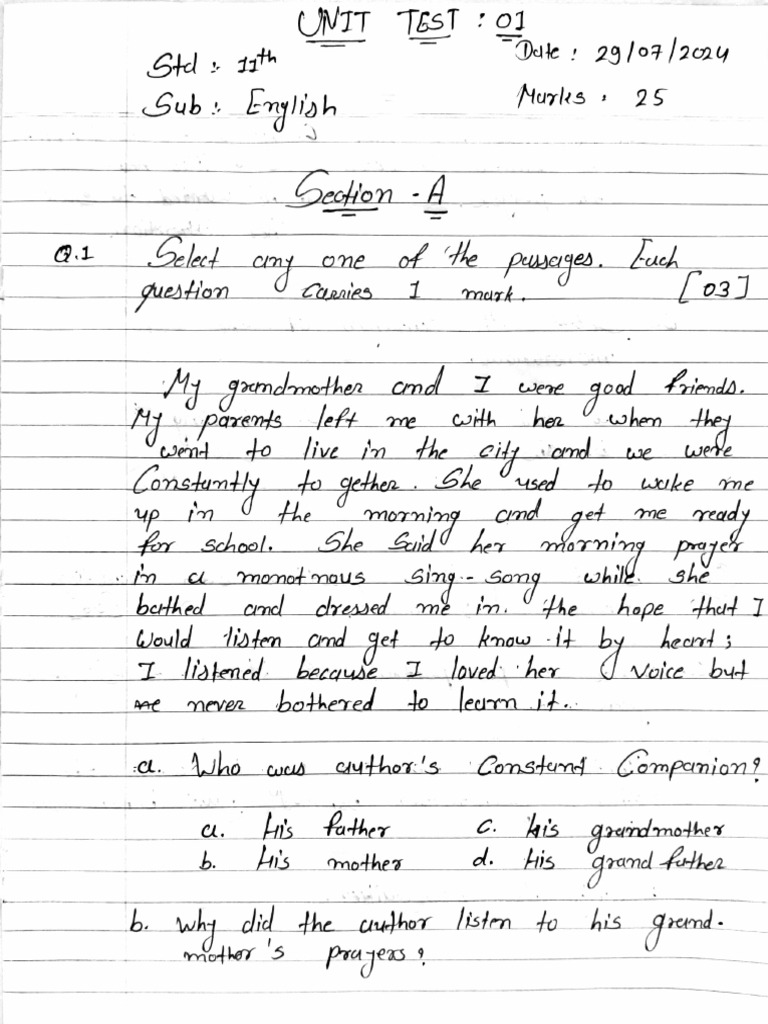 UNIT TEST : 01
Std : 11th
Date : 29/07/2024
Sub : English
Marks : 25
Section - A
Q.1 Select any one of the passages. Each
question carries 1 mark. [03]
My grandmother and I were good friends.
My parents left me with her when they
went to live in the city and we were
Constantly to gether. She used to wake me
up in the morning and get me ready
for school. She Said her morning prayer
in a monotnous sing-song while she
bathed and dressed me in the hope that I
would listen and get to know it by heart;
I listened because I loved her voice but
never bothered to learn it.
a. Who was author's Constant Companion?
a. His father c. His grandmother
b. His mother d. His grand father
b. Why did the author listen to his grand-
mother's prayers?